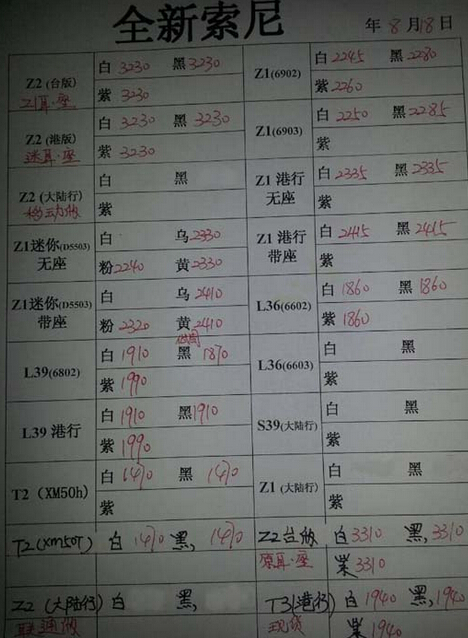 全新索尼
年 8月18日
Z2 (台版) 白 3230 黑 3230
紫 3230
Z2 (港版) 白 3230 黑 3230
迷耳·座 紫 3230
Z2 (大陆行) 白 黑
移动版 紫
Z1迷你(D5503) 白 乌 2330
无座 粉 2240 黄 2330
Z1迷你(D5503) 白 乌 2410
带座 粉 2320 黄 2410
L39(6802) 白 1910 黑 1870
紫 1990
L39 港行 白 1910 黑 1910
紫 1990
T2（XM50h） 白 1470 黑 1470
紫
T2(XM50T) 白 1470 黑, 1470
Z2 (大陆行) 白 黑,
联通版
Z1(6902) 白 2245 黑 2280
紫 2260
Z1(6903) 白 2250 黑 2285
紫
Z1 港行 白 2335 黑 2335
无座 紫
Z1 港行 白 2415 黑 2415
带座 紫
L36(6602) 白 1860 黑 1860
紫 1860
L36(6603) 白 黑
紫
S39(大陆行) 白 黑
紫
Z1 (大陆行) 白 黑
紫
Z2台版 白 3310 黑, 3310
原耳·座 紫 3310
T3(港行) 白 1940 黑, 1940
现货 紫 1940